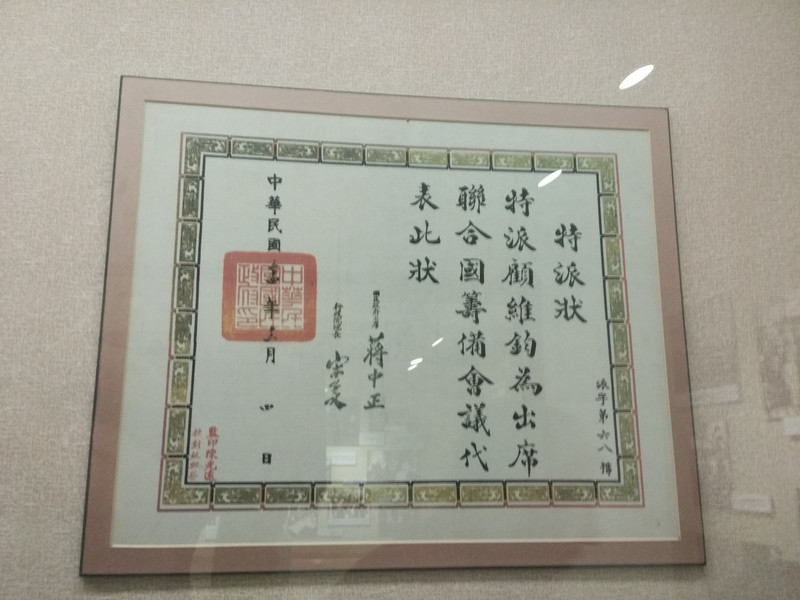 特派狀
特派顧維鈞為出席
聯合國籌備會議代
表此狀
派字第六八號
國民政府主席
蔣中正
行政院院長
宋子文
中華民國
年
月
四
日
中華民國國民政府印
監印陳光遠